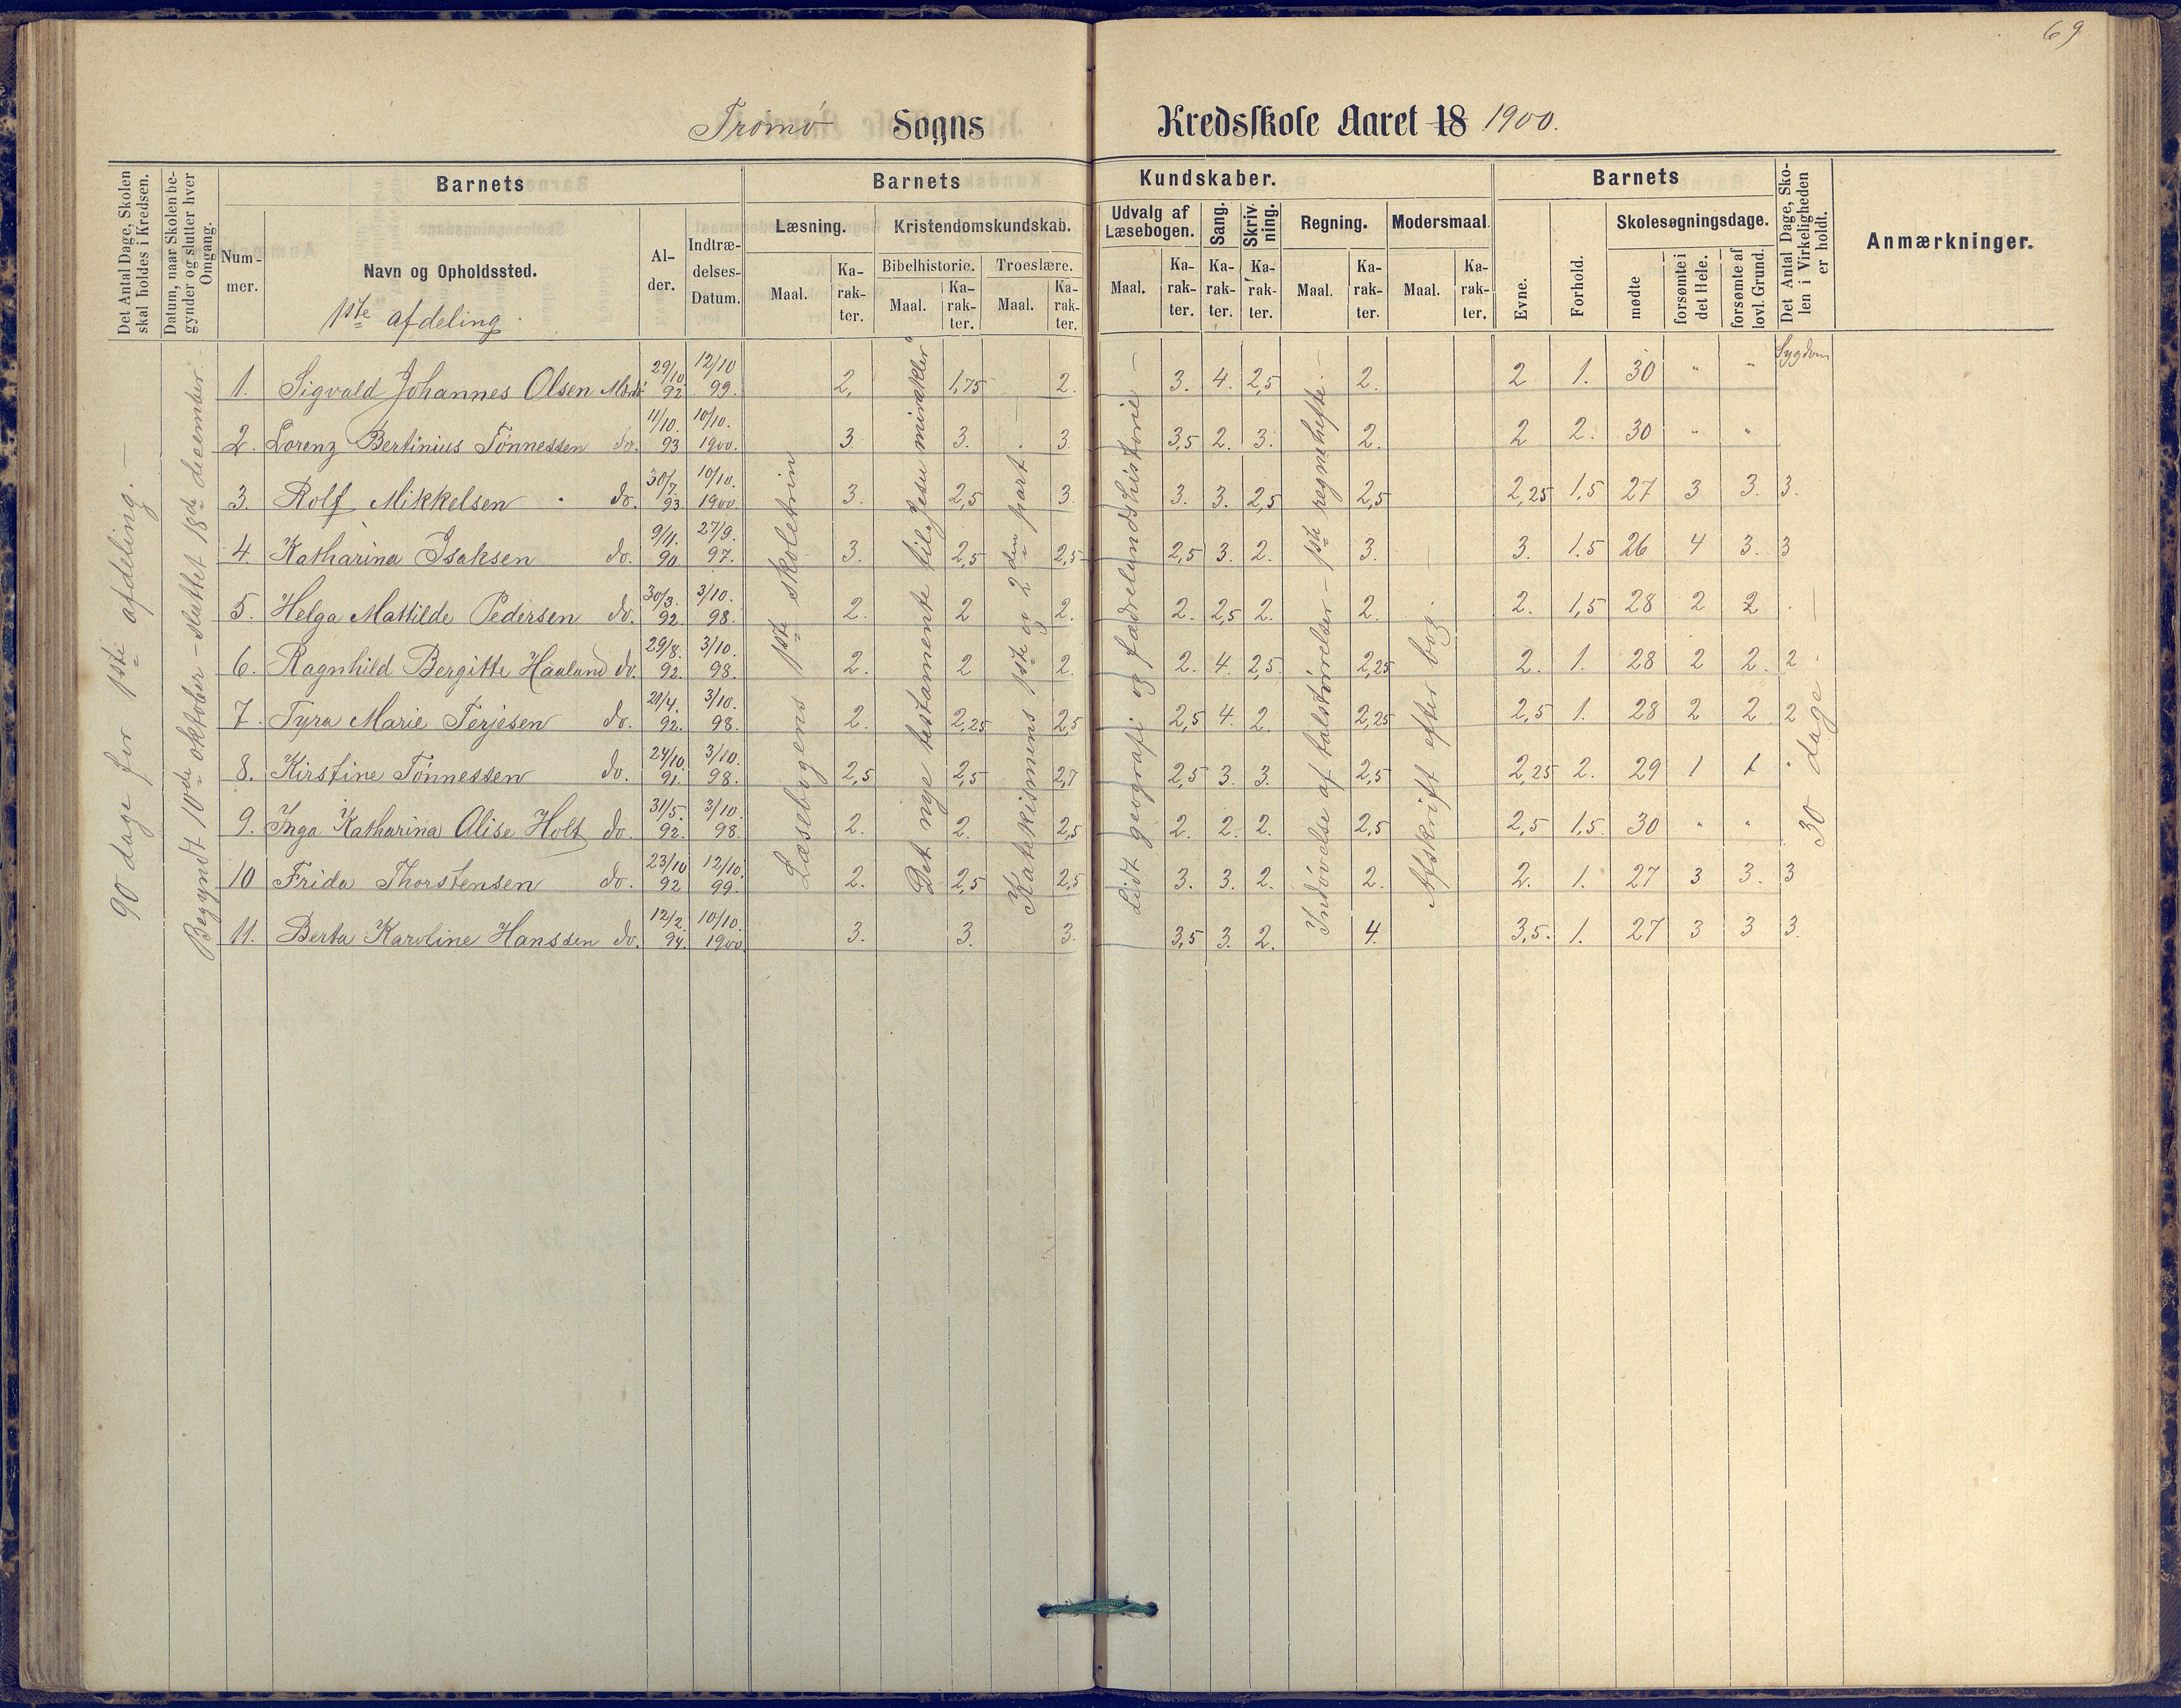 69
Tromø Sogns Kredsskole Aaret 18 1900.
Det Antal Dage, Skolen skal holdes i Kredsen.
Datum, naar Skolen begynder og slutter hver Omgang.
Barnets
Barnets Kundskaber.
Barnets
Det Antal Dage, Skolen i Virkeligheden er holdt.
Anmærkninger.
Nummer.
Navn og Opholdssted.
1ste afdeling.
Alder.
Indtrædelses-Datum.
Læsning.
Kristendomskundskab.
Udvalg af Læsebogen.
Sang.
Skrivning.
Regning.
Modersmaal.
Evne.
Forhold.
Skolesøgningsdage.
Bibelhistorie.
Troeslære.
Maal. Karakter. Maal. Karakter. Maal. Karakter. Maal. Karakter. Karakter. Karakter. Maal. Karakter. Maal. Karakter.
mødte
forsømte i det Hele.
forsømte af lovl. Grund.
Sygdom
90 dage for 1ste afdeling. —
Begyndt 10de oktober – sluttet 18de december. –
Læsebogens 1ste skoletrin
Det nye testamente til „Jesu mirakler"
Katekismens 1ste og 2den part
Lidt geografi og fædrelandshistorie –
Indøvelse af talstørrelser – 1ste regnehefte. –
Afskrift efter bog.
30 dage. —
1. Sigvald Johannes Olsen 29/10 92 12/10 99. 2. 1,75 2. 3. 4. 2,5 2. 2 1. 30 " "
2. Lorenz Bertinius Tönnessen do. 11/10. 93 10/10. 1900. 3 3. 3. 3,5 2. 3. 2. 2 2. 30 " "
3. Rolf Mikkelsen do. 30/7. 93. 10/10. 1900. 3. 2,5 3. 3. 3. 2,5 2,5 2,25 1,5 27 3 3. 3.
4. Katharina Isaksen do. 9/11. 90 27/9. 97. 3. 2,5 2,5 2,5 3. 2. 3. 3. 1.5 26 4 3. 3
5. Helga Mathilde Pedersen do. 30/3. 92. 3/10. 98. 2. 2 2. 2. 2,5 2. 2. 2. 1,5 28 2 2 .
6. Ragnhild Bergitte Haaland do. 29/8. 92. 3/10. 98. 2. 2 2. 2. 4. 2,5. 2,25 2. 1. 28 2 2. 2
7. Tyra Marie Terjesen do. 21/4. 92. 3/10. 98. 2. 2,25 2,5 2,5 4. 2. 2,25 2,5 1. 28 2 2 2
8. Kirstine Tönnessen do. 24/10. 91. 3/10. 98. 2,5 2,5 2,7 2,5 3. 3. 2,5 2,25 2. 29 1 1 .
9. Inga Katharina Alise Holt do. 31/5. 92. 3/10. 98. 2. 2. 2,5 2. 2. 2. 2,5 2,5 1,5. 30 " "
10 Frida Thorstensen do. 23/10 92 12/10. 99. 2. 2,5 2,5 3. 3. 2. 2. 2. 1. 27 3 3. 3
11. Berta Karoline Hanssen do. 12/2. 94. 10/10. 1900 3. 3. 3. 3,5 3. 2. 4. 3,5. 1. 27 3 3 3.